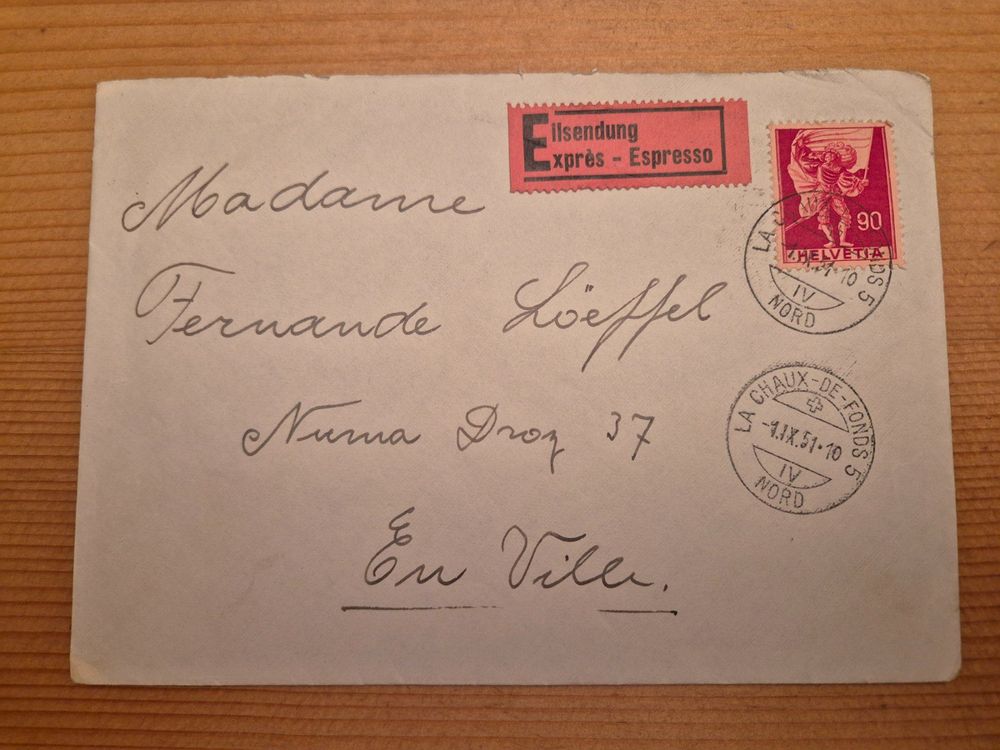 Eilsendung
Exprès - Espresso
90
HELVETIA
LA CHAUX-DE-FONDS 5
IX.51-10
IV
NORD
Madame
Fernande Löeffel
Numa Droz 37
En Ville.
LA CHAUX-DE-FONDS 5
-1.IX.51-10
IV
NORD